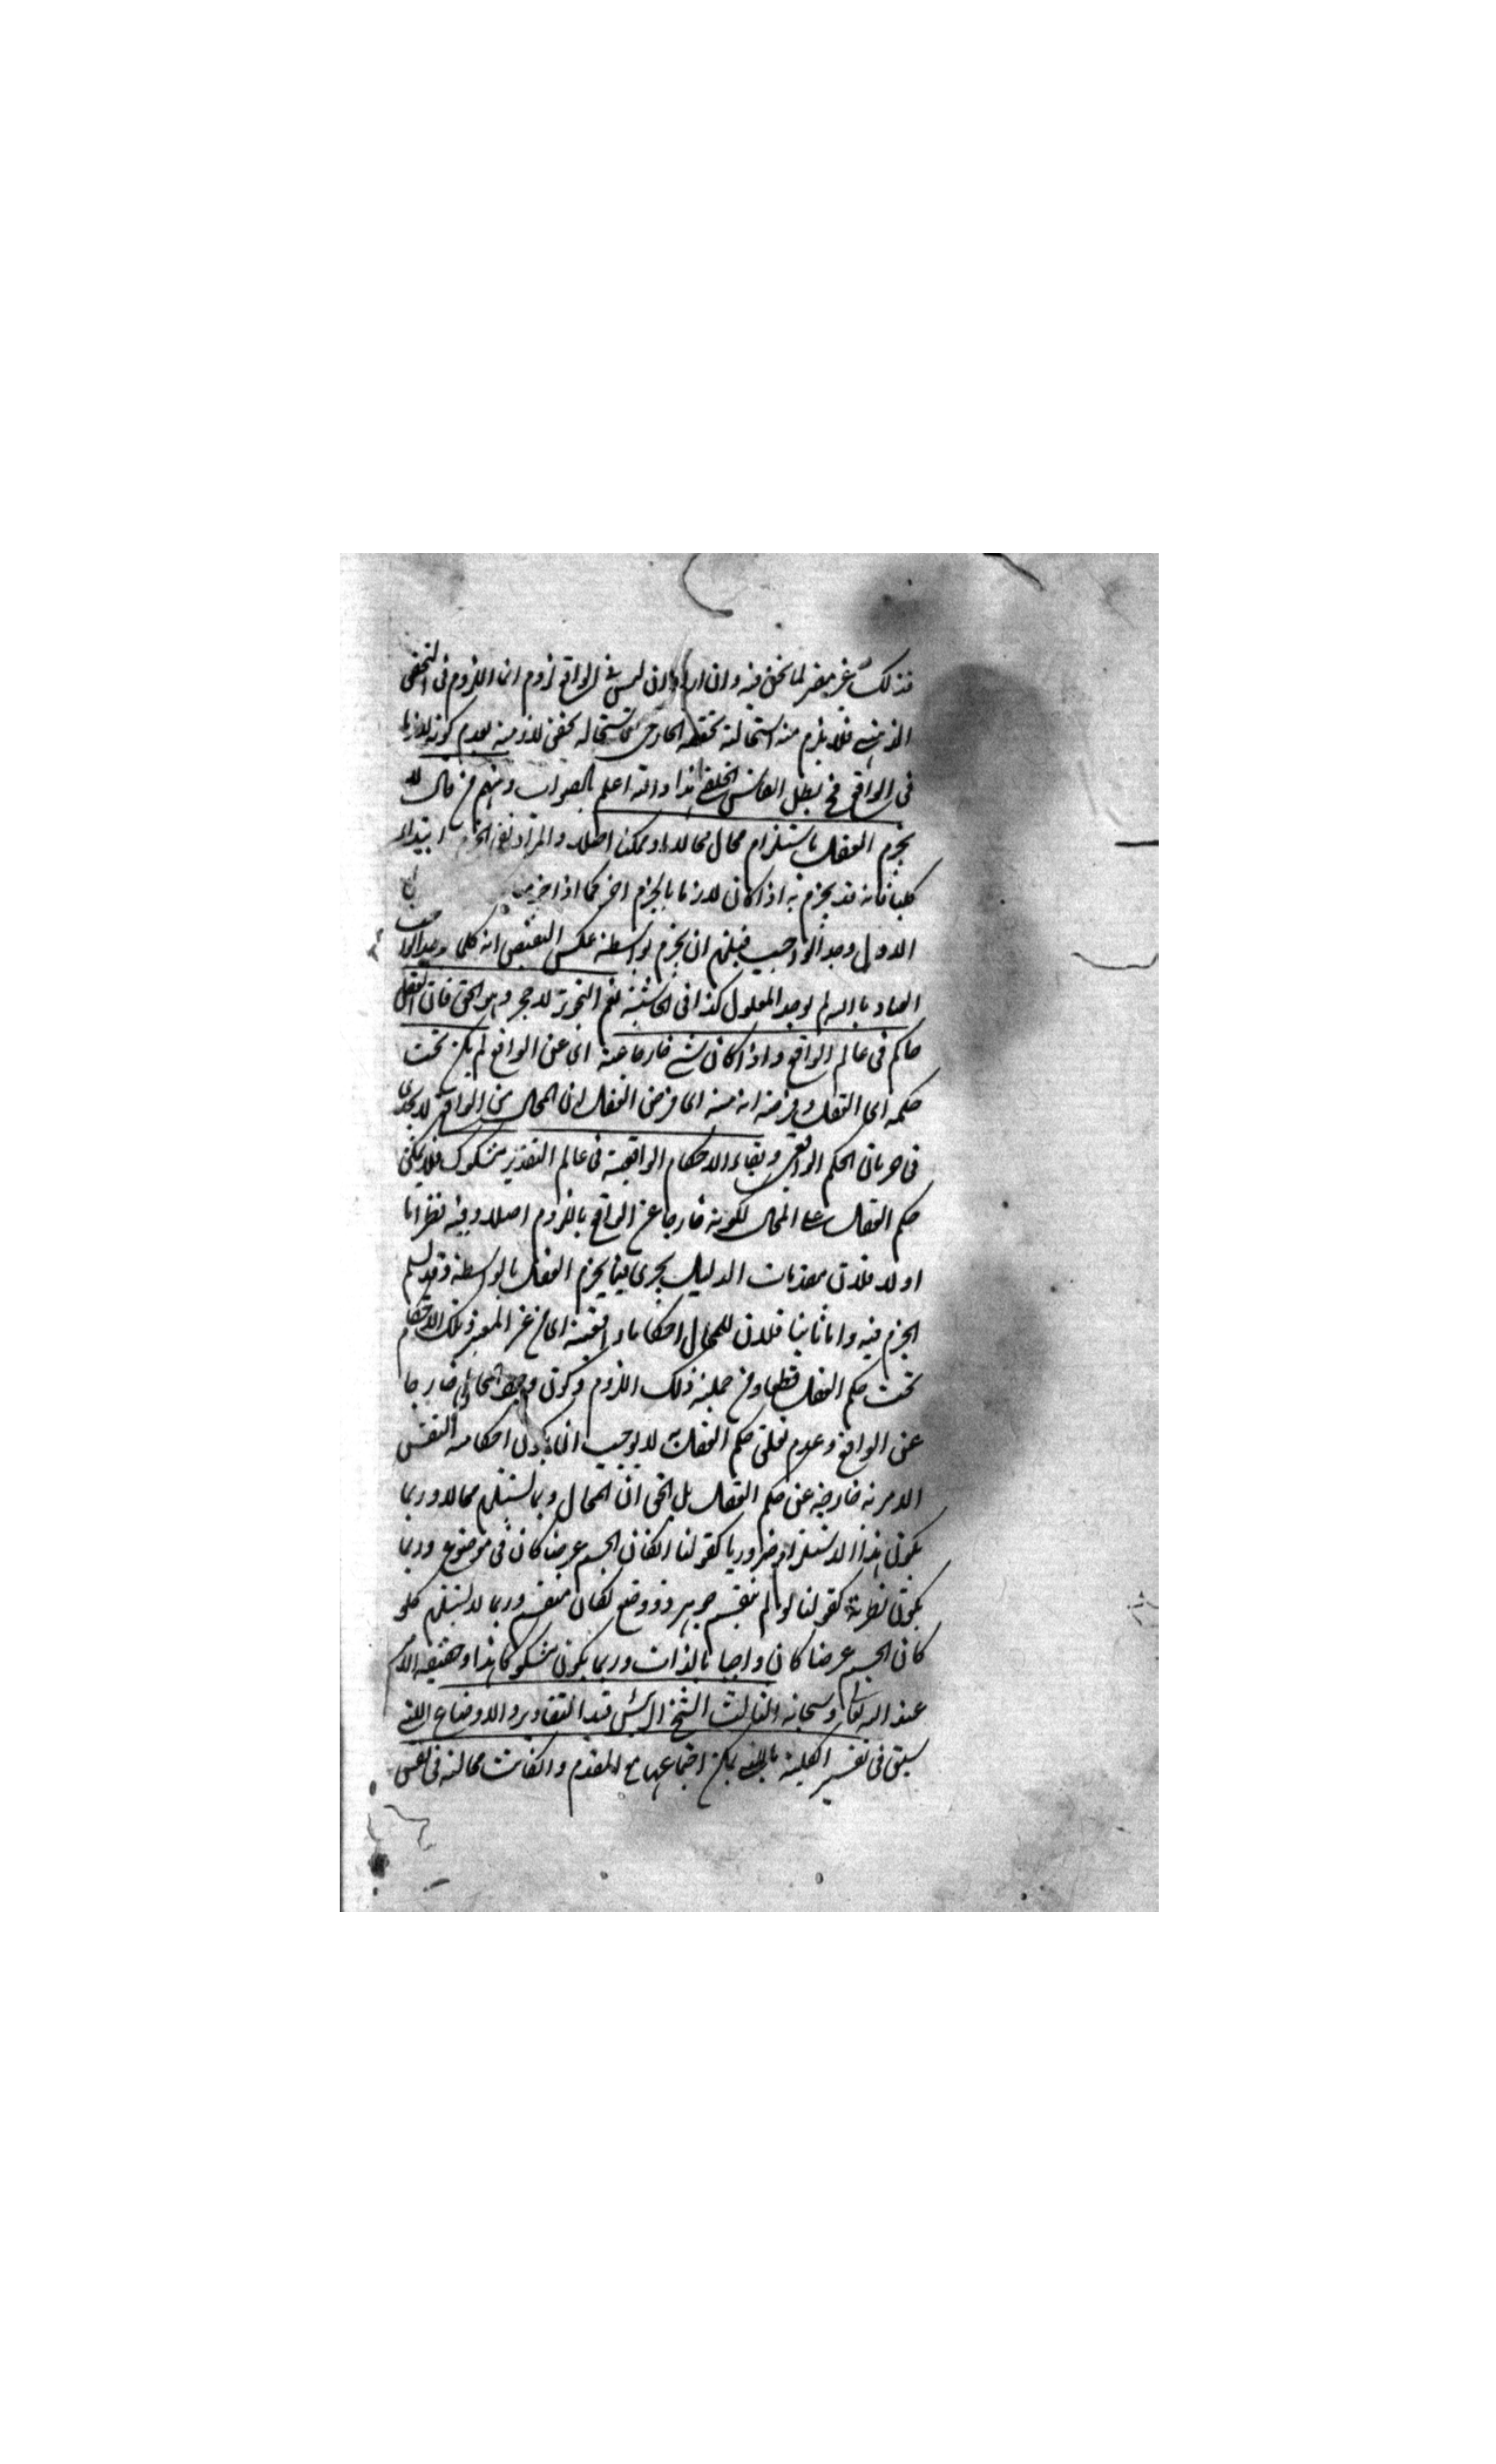 فذلك غير مضر لما نحن فيه وان اراد ان ليس في الواقع لزوم انما اللزوم في التحقق
الذهني فلا يلزم منه استحالة تحققه الخارجي استحالة تحقق لازمه لعدم كونه لازما
في الواقع فح بطل القياس الخلف هذا والله اعلم بالصواب ومنهم من قال لا
يجزم العقل باستلزام محال محالا او ممكنا اصلا والمراد نفي الجزم ابتداء
كليا فانه قد يجزم به اذا كان لازما بالجزم اخر كما اذا جزم
الاول وجد الواجب فيلزم ان يجزم بواسطة عكس النقيض انه كلما وجد الواجب
العياذ بالله لم يوجد المعلول كذا في الحاشية نعم التجويز لا حجر وهو الحق فان العقل
حاكم في عالم الواقع واذا كان شيء خارجا عنه اي عن الواقع لم يكن تحت
حكمه اي العقل وفرضه انه منه اي فرض العقل ان المحال من الواقع لا يجدي
في جريان الحكم الواقعي وبقاء الاحكام الواقعية في عالم التقدير مشكوك فلا يمكن
حكم العقل على المحال لكونه خارجا عن الواقع باللزوم اصلا وفيه نظر اما
اولا فلان مقدمات الدليل يجري فيما يجزم العقل بالواسطة وقد سلم
الجزم فيه واما ثانيا فلان للمحال احكاما واقعية اي من غير المعتبر وتلك الاحكام
تحت حكم العقل قطعا ومن جملته ذلك اللزوم وكون وجود المحال خارجا
عن الواقع وعدم تعلق حكم العقل به لا يوجب ان يكون احكامه النفس
الامرية خارجة عن حكم العقل بل الحق ان المحال ربما يستلزم محالا وربما
يكون هذا الاستلزام ضروريا كقولنا ان كان الجسم عرضا كان في موضوع وربما
يكون نظرية كقولنا لو لم ينقسم جوهر ذو وضع لكان منقسم وربما لا يستلزم كلو
كان الجسم عرضا كان واجبا بالذات وربما يكون مشكوكا هذا وحقيقة الامر
عند الله تعالى وسبحانه الثالث الشيخ الرئيس قيد التقادير والاوضاع اللتي
سبق في تفسير الكلية باللتي يمكن اجتماعها مع المقدم وان كانت محالة في نفس